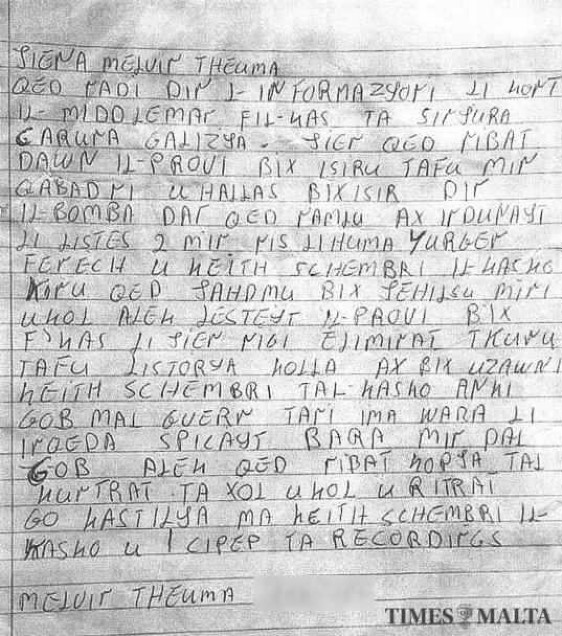 JIENA MELVIN THEUMA
QED NADI DIN L-INFORMAZYONI LI KONT
IL-MIDDLEMAN FIL-KAS TA SINJURA
CARUNA GALIZYA. JIEN QED NIBAT
DAWN IL-PROVI BIX ISIRU TAFU MIN
QABADNI U HALLAS BIX ISIR DIN
IL-BOMBA DAN QED NAMLU AX INDUNAYT
LI LISTES 2 MIN NIS LI HUMA YURGEN
FENECH U KEITH SCHEMBRI IL-KASKO
KINU QED JAHDMU BIX JEHILSU MINI
UKOL ALEK LESTEYT IL-PROVI BIX
F'KAS LI JIEN NIGI ELIMINAT TKUNU
TAFU LISTORYA KOLLA AX BIX UZAWNI
KEITH SCHEMBRI TAL-KASKO ANKI
GOB MAL GVERN TANI IMA WARA LI
INQEDA SPICAYT BARA MIN DAL
GOB ALEK QED NIBAT KOPJA TAL
KUNTRAT TA XOL UKOL U RITRAT
GO KASTILYA MA KEITH SCHEMBRI IL-
KASKO U 1 CIPEP TA RECORDINGS
MELVIN THEUMA
TIMES MALTA